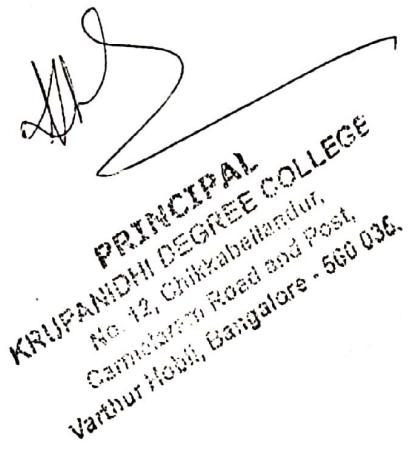 PRINCIPAL
KRUPANIDHI DEGREE COLLEGE
No. 12, Chikkabellandur,
Carmelaram Road and Post,
Varthur Hobli, Bangalore - 560 036.